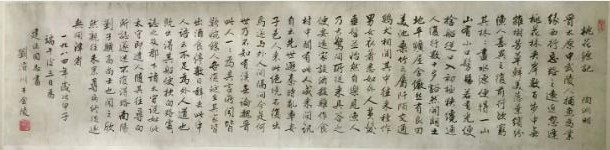 桃花源記 陶淵明
晉太原中武陵人捕魚為業
緣溪行忘路之遠近忽逢
桃花林夾岸數百步中無雜
樹芳草鮮美落英繽紛
漁人甚異之復前行欲窮
其林林盡水源便得一山
山有小口髣髴若有光便
捨船從口入初極狹纔通
人復行數十步豁然開朗土
地平曠屋舍儼然有良田
美池桑竹之屬阡陌交通
雞犬相聞其中往來種作
男女衣著悉如外人黃髮
垂髫並怡然自樂見漁人
乃大驚問所從來具答之
便要還家設酒殺雞作食
村中聞有此人咸來問訊
自云先世避秦時亂率妻
子邑人來此絕境不復出
焉遂與外人間隔問今是何
世乃不知有漢無論魏晉
此人一一為具言所聞皆
歎惋餘人各復延至其家皆
出酒食停數日辭去此中
人語云不足為外人道也
既出得其船便扶向路處處
誌之及郡下詣太守說如此
太守即遣人隨其往尋向
所誌遂迷不復得路南陽
劉子驥高尚士也聞之欣
然規往未果尋病終後遂
無問津者
一九八四年歲次甲子
端午後三日為
建國同志書
於金陵